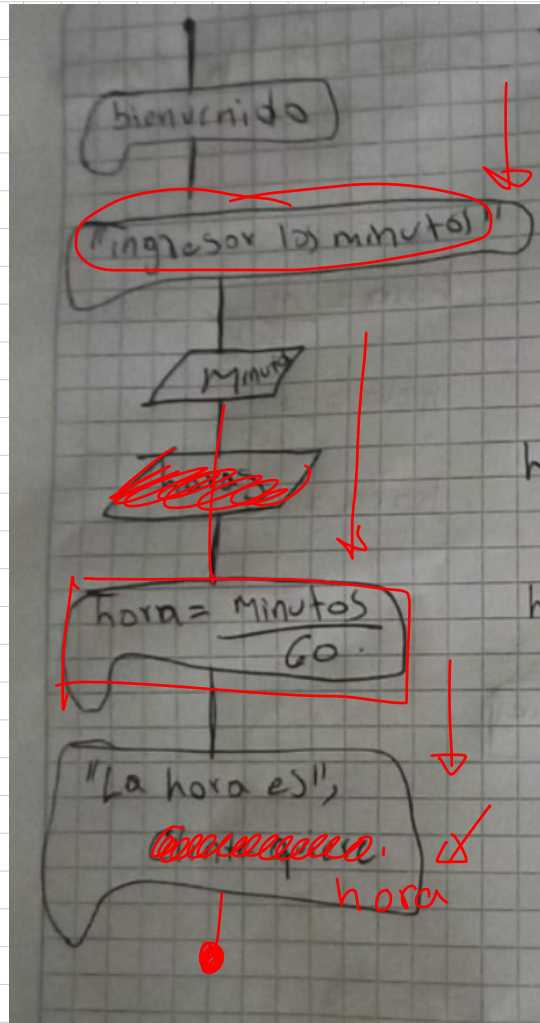 bienvenido
"ingresar los minutos"
Minutos
hora = Minutos
60.
"La hora es",
hora
h
h